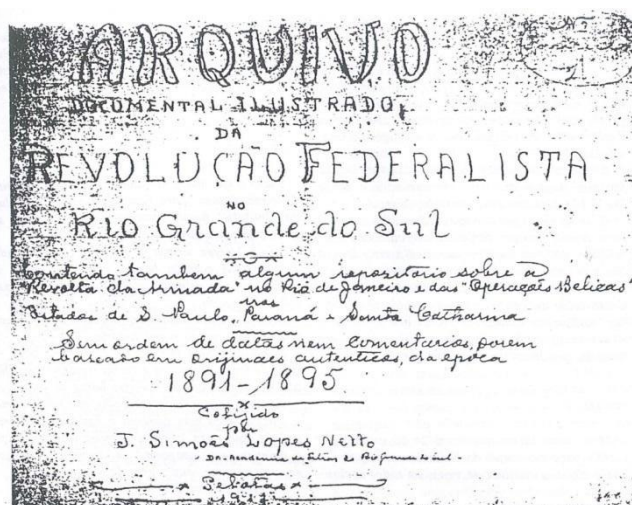 ARQUIVO
DOCUMENTAL ILUSTRADO
DA
REVOLUÇÃO FEDERALISTA
NO
Rio Grande do Sul
Contendo tambem algum repositorio sobre a
"Revolta da Armada" no Rio de Janeiro e das "Operações Belicas"
nos
Estados de S. Paulo, Paraná e Santa Catharina
Sem ordem de datas nem comentarios, porem
baseado em originaes autenticos, da epoca
1891-1895
Coligido
por
J. Simões Lopes Netto
Da Academia de Letras do Rio Grande do Sul
Pelotas